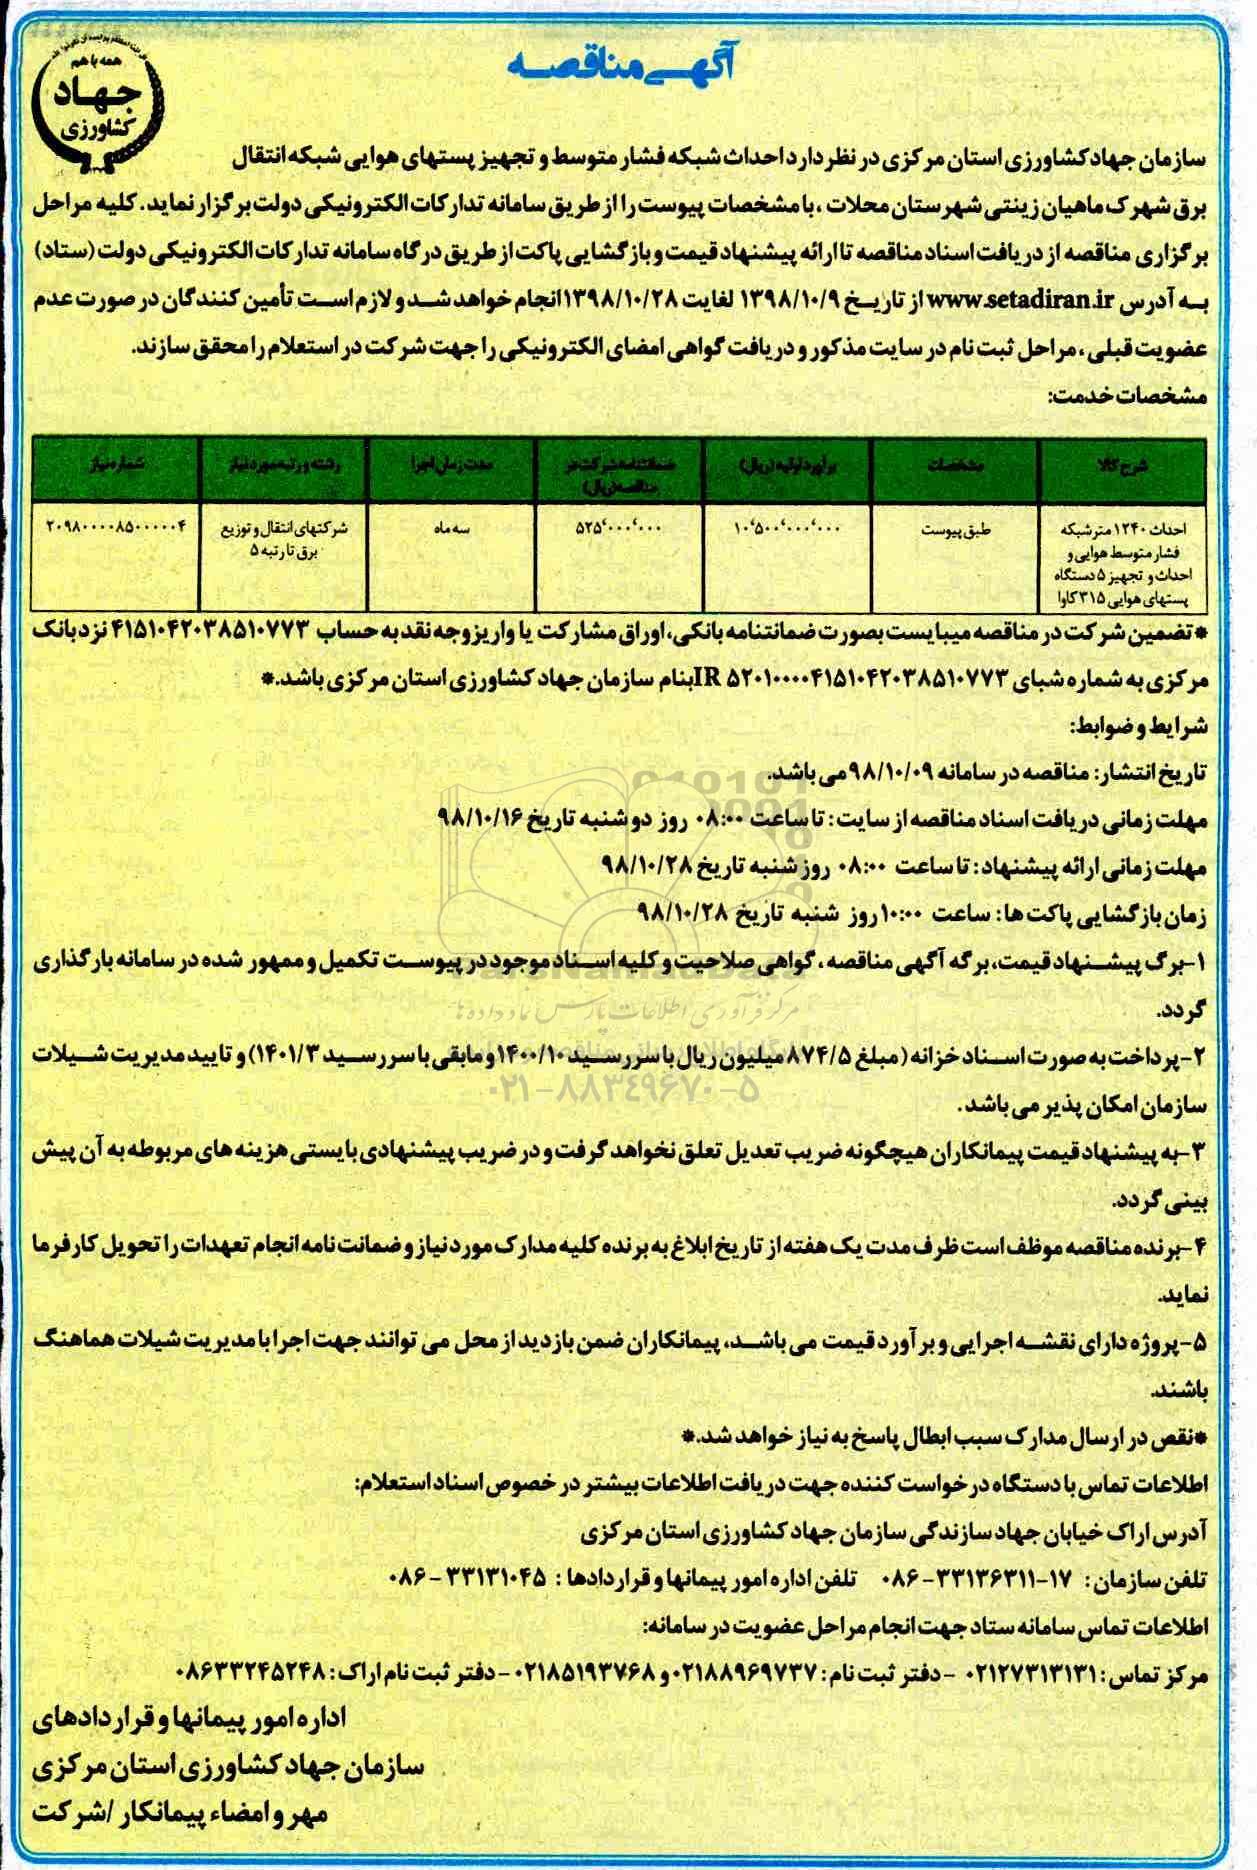 آگهی مناقصه
همه با هم
جهاد
کشاورزی
سازمان جهاد کشاورزی استان مرکزی در نظر دارد احداث شبکه فشار متوسط و تجهیز پستهای هوایی شبکه انتقال
برق شهرک ماهیان زینتی شهرستان محلات ، با مشخصات پیوست را از طریق سامانه تدارکات الکترونیکی دولت برگزار نماید. کلیه مراحل
برگزاری مناقصه از دریافت اسناد مناقصه تا ارائه پیشنهاد قیمت و بازگشایی پاکت از طریق درگاه سامانه تدارکات الکترونیکی دولت (ستاد)
به آدرس www.setadiran.ir از تاریخ ۱۳۹۸/۱۰/۹ لغایت ۱۳۹۸/۱۰/۲۸ انجام خواهد شد و لازم است تأمین کنندگان در صورت عدم
عضویت قبلی ، مراحل ثبت نام در سایت مذکور و دریافت گواهی امضای الکترونیکی را جهت شرکت در استعلام را محقق سازند.
مشخصات خدمت:
شرح کالا
مشخصات
برآورد اولیه (ریال)
ضمانتنامه شرکت در
مناقصه (ریال)
مدت زمان اجرا
رشته و رتبه مورد نیاز
شماره نیاز
احداث ۱۲۴۰ متر شبکه
فشار متوسط هوایی و
احداث و تجهیز ۵ دستگاه
پستهای هوایی ۳۱۵ کاوا
طبق پیوست
۱۰٬۵۰۰٬۰۰۰٬۰۰۰
۵۲۵٬۰۰۰٬۰۰۰
سه ماه
شرکتهای انتقال و توزیع
برق تا رتبه ۵
۲۰۹۸۰۰۰۰۸۵۰۰۰۰۰۴
*تضمین شرکت در مناقصه میبایست بصورت ضمانتنامه بانکی، اوراق مشارکت یا واریز وجه نقد به حساب ۴۱۵۱۰۴۲۰۳۸۵۱۰۷۷۳ نزد بانک
مرکزی به شماره شبای IR ۵۲۰۱۰۰۰۰۴۱۵۱۰۴۲۰۳۸۵۱۰۷۷۳ بنام سازمان جهاد کشاورزی استان مرکزی باشد.*
شرایط و ضوابط:
تاریخ انتشار: مناقصه در سامانه ۹۸/۱۰/۰۹ می باشد.
مهلت زمانی دریافت اسناد مناقصه از سایت: تا ساعت ۰۸:۰۰ روز دوشنبه تاریخ ۹۸/۱۰/۱۶
مهلت زمانی ارائه پیشنهاد: تا ساعت ۰۸:۰۰ روز شنبه تاریخ ۹۸/۱۰/۲۸
زمان بازگشایی پاکت ها: ساعت ۱۰:۰۰ روز شنبه تاریخ ۹۸/۱۰/۲۸
۱-برگ پیشنهاد قیمت، برگه آگهی مناقصه ، گواهی صلاحیت و کلیه اسناد موجود در پیوست تکمیل و ممهور شده در سامانه بارگذاری
گردد.
۲-پرداخت به صورت اسناد خزانه (مبلغ ۸۷۴/۵ میلیون ریال با سررسید ۱۴۰۰/۱۰ و مابقی با سررسید ۱۴۰۱/۳) و تایید مدیریت شیلات
سازمان امکان پذیر می باشد .
۰۲۱-۸۸۳۴۹۶۷۰-۵
۳-به پیشنهاد قیمت پیمانکاران هیچگونه ضریب تعدیل تعلق نخواهد گرفت و در ضریب پیشنهادی بایستی هزینه های مربوطه به آن پیش
بینی گردد.
۴-برنده مناقصه موظف است ظرف مدت یک هفته از تاریخ ابلاغ به برنده کلیه مدارک مورد نیاز و ضمانت نامه انجام تعهدات را تحویل کارفرما
نماید.
۵-پروژه دارای نقشه اجرایی و برآورد قیمت می باشد، پیمانکاران ضمن بازدید از محل می توانند جهت اجرا با مدیریت شیلات هماهنگ
باشند.
*نقص در ارسال مدارک سبب ابطال پاسخ به نیاز خواهد شد.*
اطلاعات تماس با دستگاه درخواست کننده جهت دریافت اطلاعات بیشتر در خصوص اسناد استعلام:
آدرس اراک خیابان جهاد سازندگی سازمان جهاد کشاورزی استان مرکزی
تلفن سازمان : ۱۷-۳۳۱۳۶۳۱۱-۰۸۶ تلفن اداره امور پیمانها و قراردادها : ۳۳۱۳۱۰۴۵-۰۸۶
اطلاعات تماس سامانه ستاد جهت انجام مراحل عضویت در سامانه:
مرکز تماس: ۰۲۱۲۷۳۱۳۱۳۱ - دفتر ثبت نام: ۰۲۱۸۸۹۶۹۷۳۷ و ۰۲۱۸۵۱۹۳۷۶۸ - دفتر ثبت نام اراک: ۰۸۶۳۳۲۴۵۲۴۸
اداره امور پیمانها و قراردادهای
سازمان جهاد کشاورزی استان مرکزی
مهر و امضاء پیمانکار / شرکت